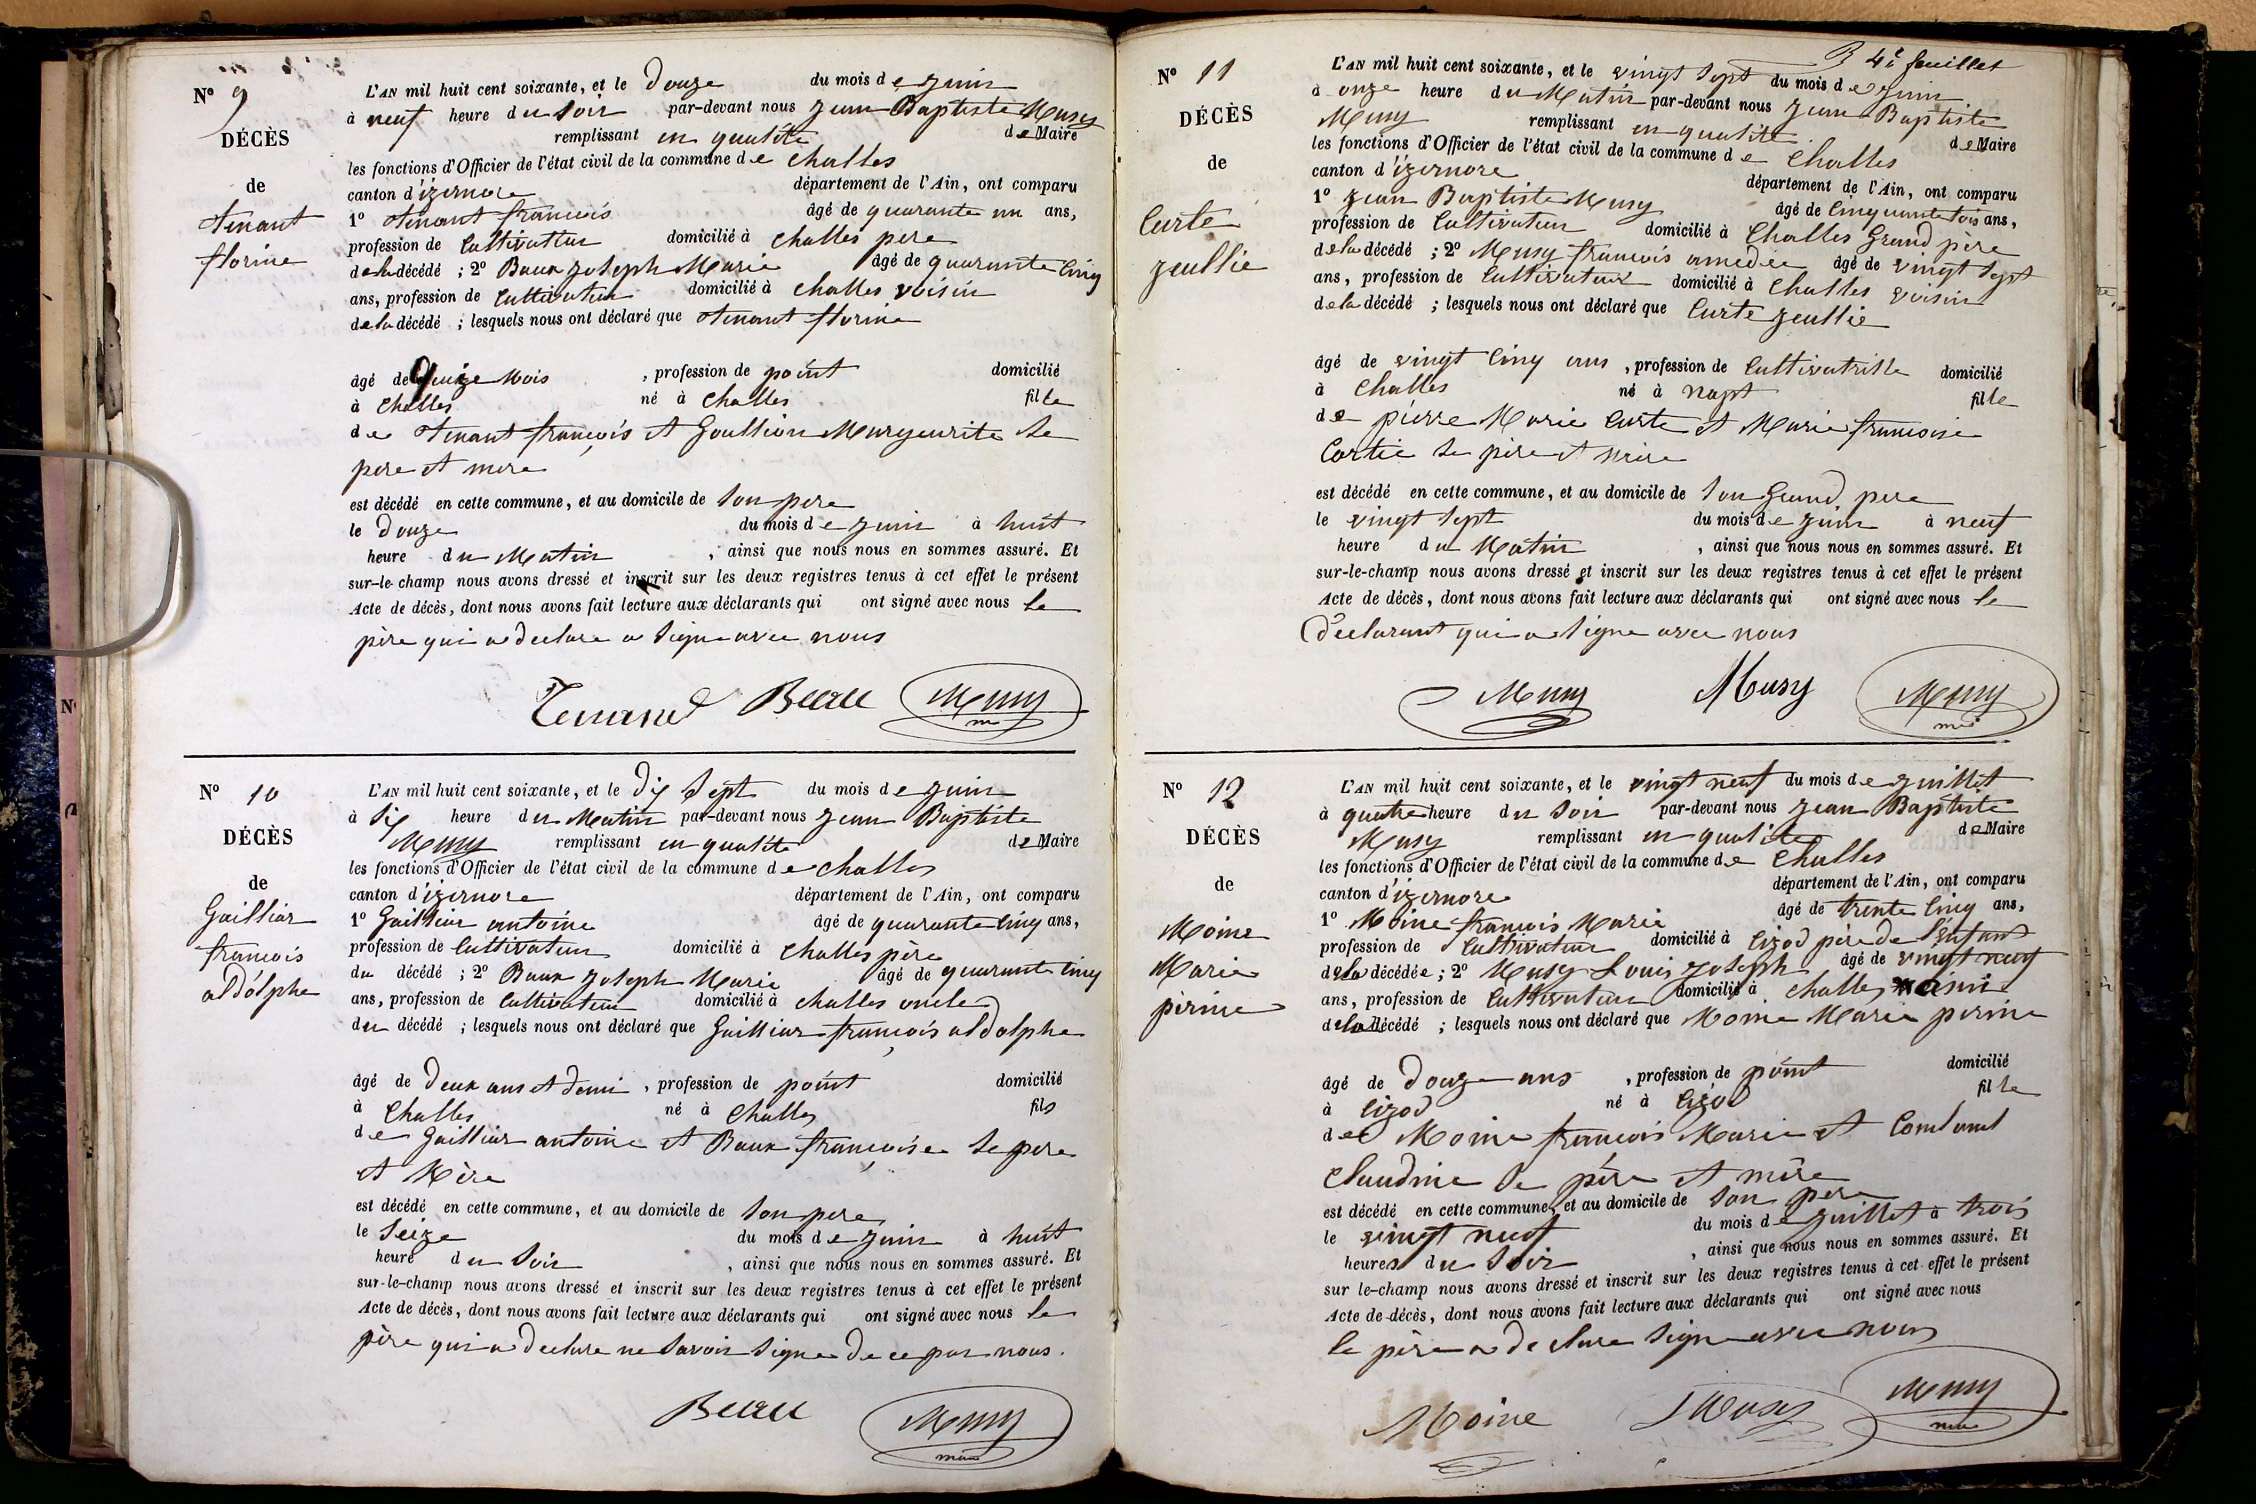 Nº 9
DÉCÈS
de
tenant
florine
L'AN mil huit cent soixante, et le Douze du mois de juin
à neuf heure du soir par-devant nous jean Baptiste Musy
remplissant en qualité de Maire
les fonctions d'Officier de l'état civil de la commune de challes
canton d'izernore département de l'Ain, ont comparu
1º tenant francois âgé de quarante un ans,
profession de Cultivateur domicilié à challes pere
de la décédé ; 2º Baux joseph Marie âgé de quarante cinq
ans, profession de Cultivateur domicilié à challes voisin
de la décédé ; lesquels nous ont déclaré que tenant florine
âgé de quize Mois , profession de point domicilié
à challes né à challes fille
de tenant françois et Goullion Margeurite se
pere et mere
est décédé en cette commune, et au domicile de son pere
le Douze du mois de juin à huit
heure du Matin , ainsi que nous nous en sommes assuré. Et
sur-le-champ nous avons dressé et inscrit sur les deux registres tenus à cet effet le présent
Acte de décès, dont nous avons fait lecture aux déclarants qui ont signé avec nous le
père qui a declare a signe avec nous
Tenand Beau Musy
Nº 10
DÉCÈS
de
Gailliar
francois
aldolphe
L'AN mil huit cent soixante, et le Dix sept du mois de juin
à six heure du Matin par-devant nous jean Baptiste
Musy remplissant en qualité de Maire
les fonctions d'Officier de l'état civil de la commune de challes
canton d'izernore département de l'Ain, ont comparu
1º Gailliar antoine âgé de quarante cinq ans,
profession de Cultivateur domicilié à challes père
du décédé ; 2º Baux joseph Marie âgé de quarante cinq
ans, profession de Cultivateur domicilié à challes oncle
du décédé ; lesquels nous ont déclaré que Gailliar françois aldolphe
âgé de Deux ans et Demi , profession de point domicilié
à Challes né à Challes fils
de Gailliar antoine et Baux françoise se pere
et Mère
est décédé en cette commune, et au domicile de son pere
le Seize du mois de juin à huit
heure du soir , ainsi que nous nous en sommes assuré. Et
sur-le-champ nous avons dressé et inscrit sur les deux registres tenus à cet effet le présent
Acte de décès, dont nous avons fait lecture aux déclarants qui ont signé avec nous le
père qui a declare ne savoir signe de ce par nous.
Beau Musy
4e feuillet
Nº 11
DÉCÈS
de
Curte
jeullie
L'AN mil huit cent soixante, et le vingt sept du mois de juin
à onze heure du Matin par-devant nous jean Baptiste
Musy remplissant en qualité de Maire
les fonctions d'Officier de l'état civil de la commune de Challes
canton d'izernore département de l'Ain, ont comparu
1º jean Baptiste Musy âgé de Cinquante tois ans,
profession de Cultivateur domicilié à Challes Grand père
de la décédé ; 2º Musy francois amedée âgé de vingt sept
ans, profession de Cultivateur domicilié à Challes voisin
de la décédé ; lesquels nous ont déclaré que Curte jeullie
âgé de vingt cinq ans , profession de Cultivatrisse domicilié
à Challes né à napt fille
de pierre Marie Curte et Marie francoise
Cortie se père et mère
est décédé en cette commune, et au domicile de son Grand pere
le vingt sept du mois de juin à neuf
heure du Matin , ainsi que nous nous en sommes assuré. Et
sur-le-champ nous avons dressé et inscrit sur les deux registres tenus à cet effet le présent
Acte de décès, dont nous avons fait lecture aux déclarants qui ont signé avec nous le
Declarant qui a signe avec nous
Musy Musy Musy
Nº 12
DÉCÈS
de
Moine
Marie
pirine
L'AN mil huit cent soixante, et le vingt neuf du mois de juillet
à quatre heure du soir par-devant nous jean Baptiste
Musy remplissant en qualité de Maire
les fonctions d'Officier de l'état civil de la commune de Challes
canton d'izernore département de l'Ain, ont comparu
1º Moine françois Marie âgé de trente cinq ans,
profession de Cultivateur domicilié à Cizod père de l'Enfant
de la décédée ; 2º Musy Louis joseph âgé de vingt neuf
ans, profession de Cultivateur domicilié à challes voisin
de la décédé ; lesquels nous ont déclaré que Moine Marie pirine
âgé de Douze ans , profession de point domicilié
à Cizod né à Cizod fille
de Moine françois Marie et
Claudine se père et mère
est décédé en cette commune, et au domicile de son pere
le vingt neuf du mois de juillet à trois
heures du soir , ainsi que nous nous en sommes assuré. Et
sur le-champ nous avons dressé et inscrit sur les deux registres tenus à cet effet le présent
Acte de décès, dont nous avons fait lecture aux déclarants qui ont signé avec nous
le père a declare signe avec nous
Moine Musy Musy